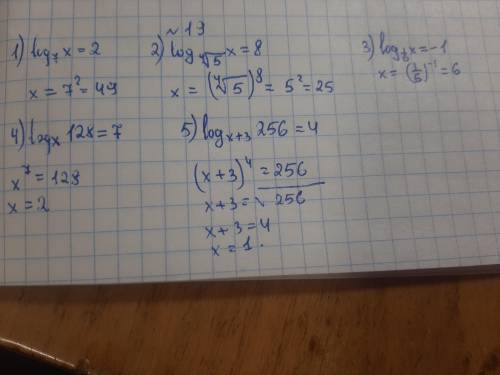 ~ 13
1) log₇ x = 2
x = 7² = 49
2) log ∜5 x = 8
x = (∜5)⁸ = 5² = 25
3) log x = -1
x = ( )⁻¹ = 6
4) logₓ 128 = 7
x⁷ = 128
x = 2
5) logₓ₊₃ 256 = 4
(x+3)⁴ = 256
x+3 = √256
x+3 = 4
x = 1.